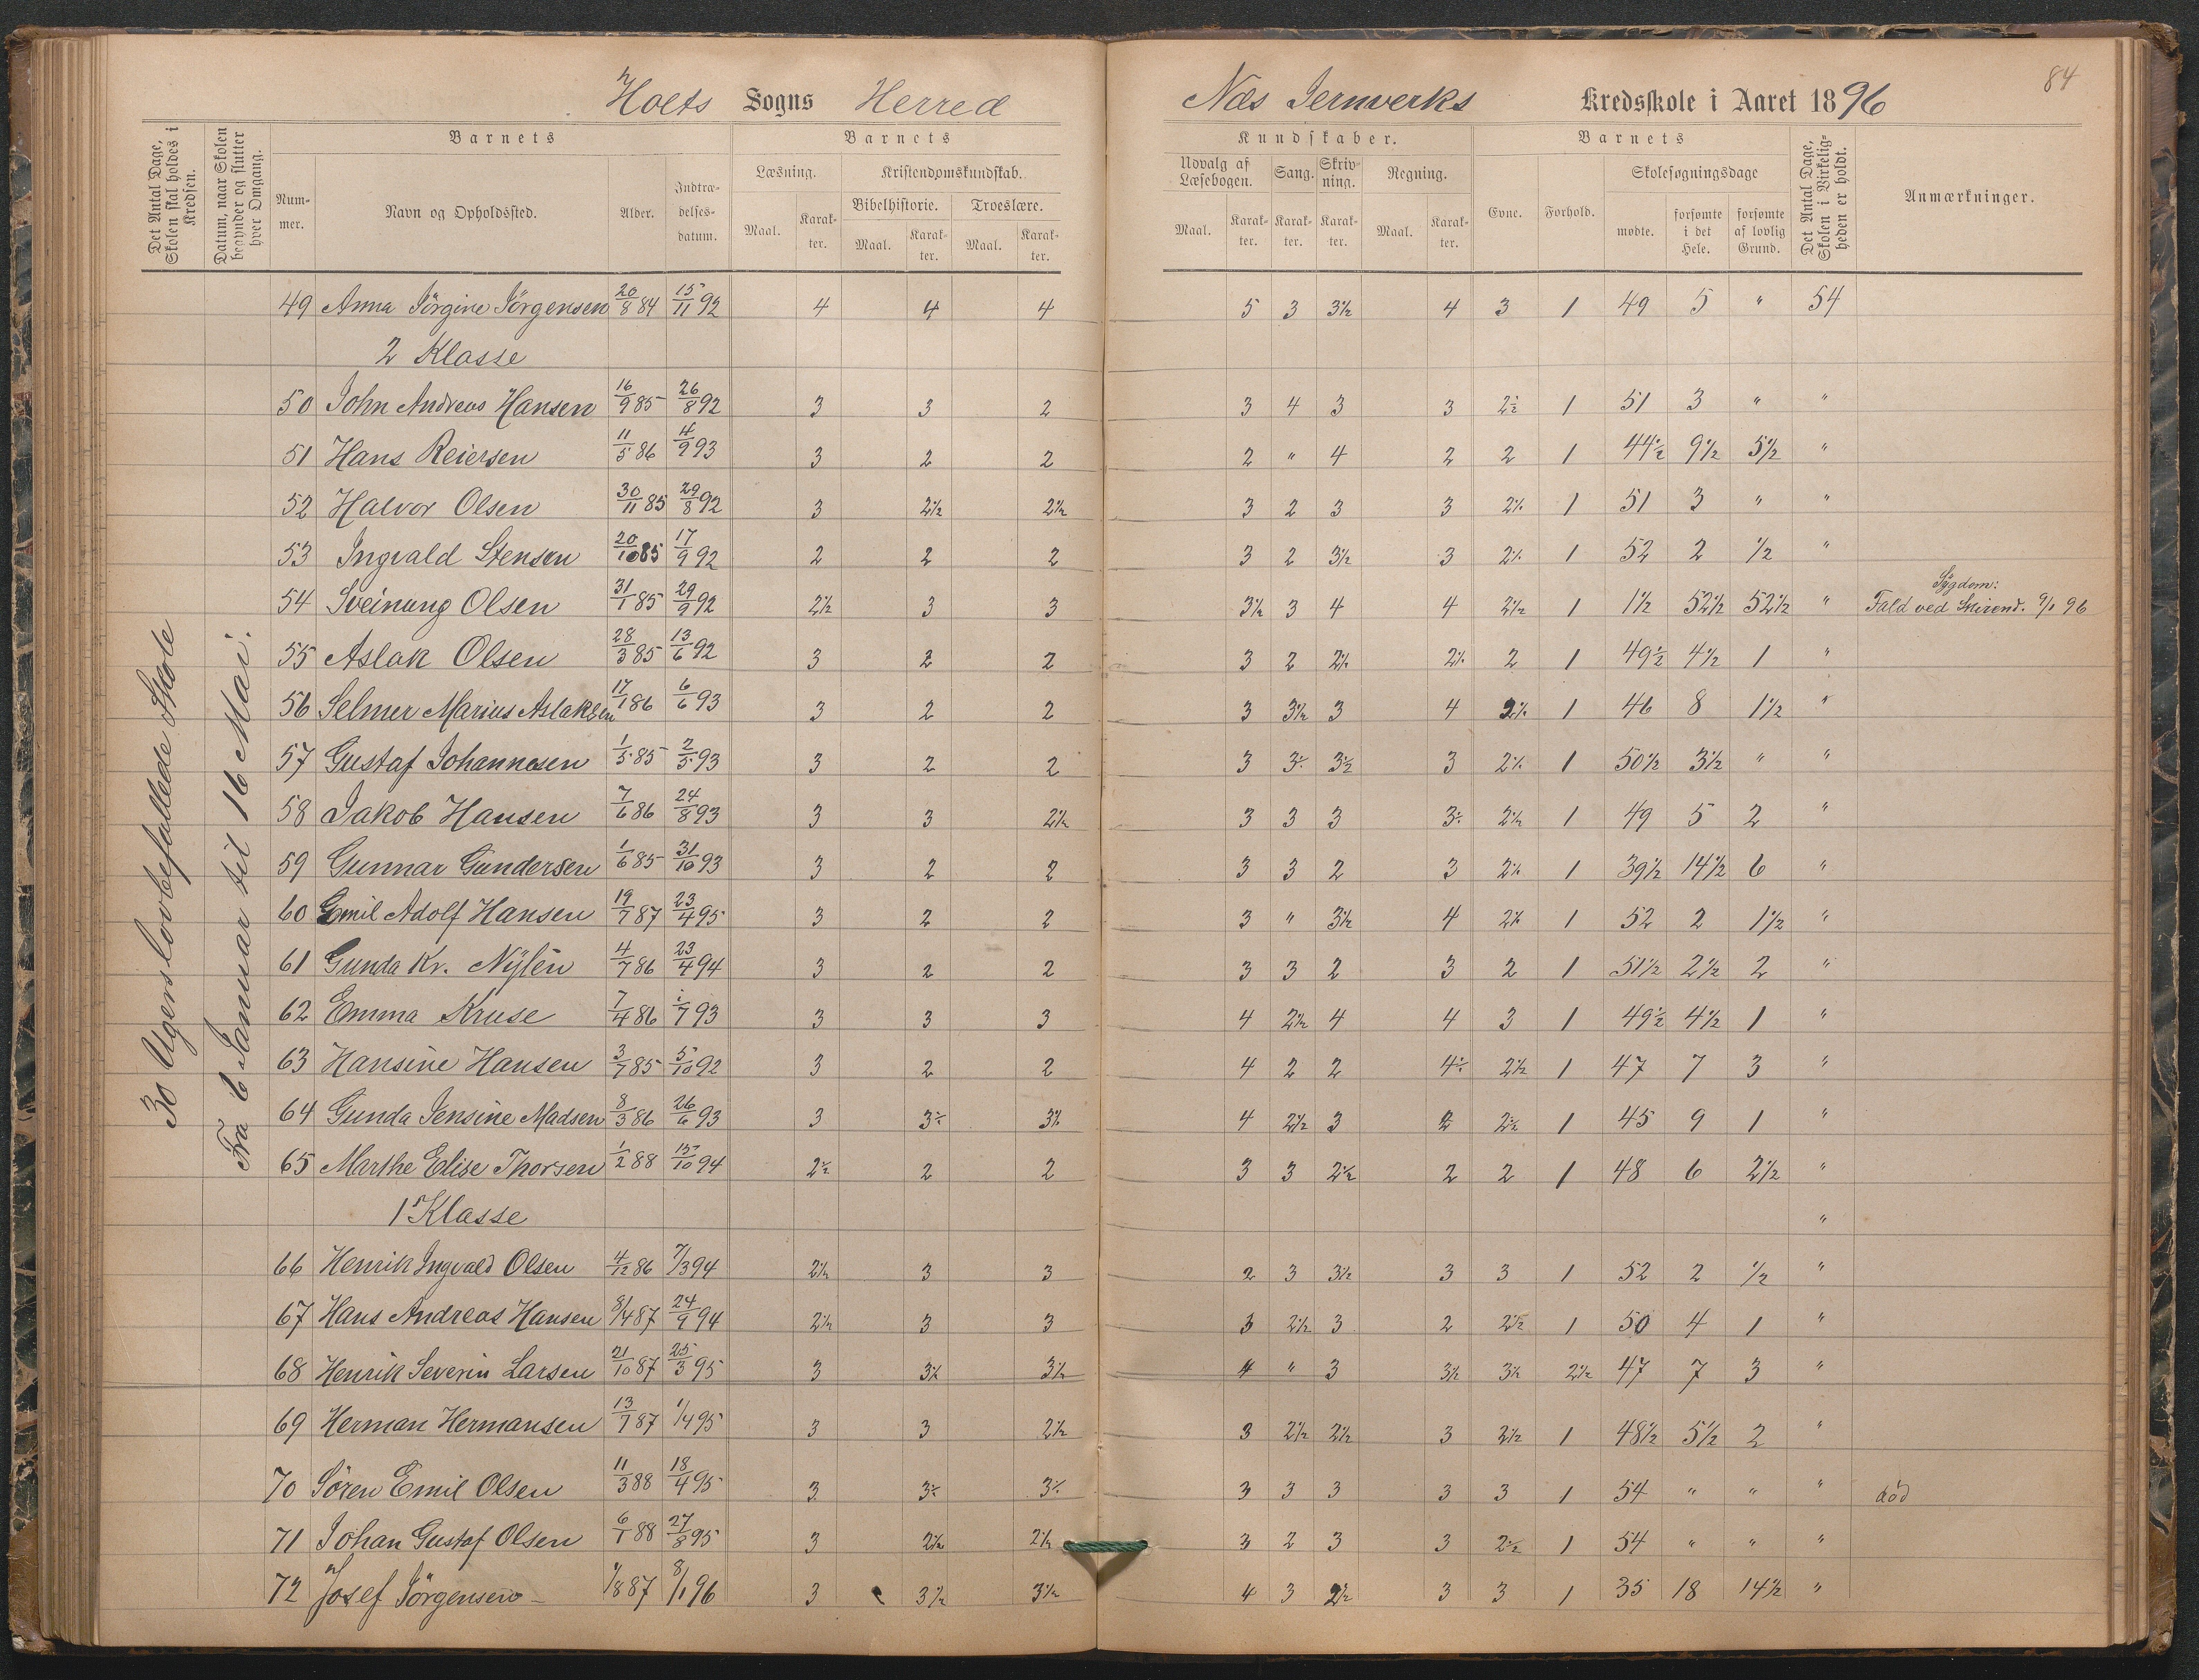 Holts Sogns Herred
Næs Jernverks Kredsskole i Aaret 1896
84
Det Antal Dage, Skolen skal holdes i Kredsen.
Datum, naar Skolen begynder og slutter hver Omgang.
Barnets
Barnets
Kundskaber.
Barnets
Det Antal Dage, Skolen i Virkeligheden er holdt.
Anmærkninger.
Nummer.
Navn og Opholdssted.
Alder.
Indtrædelsesdatum.
Læsning.
Kristendomskundskab.
Bibelhistorie.
Troeslære.
Udvalg af Læsebogen.
Sang.
Skrivning.
Regning.
Evne.
Forhold.
Skolesøgningsdage
Maal. Karakter. Maal. Karakter. Maal. Karakter.
Maal. Karakter. Karakter. Karakter. Maal. Karakter.
mødte. forsømte i det Hele. forsømte af lovlig Grund.
30 Ugers lovbefallede Skole
Fra 6 Januar til 16 Mai.
49 Anna Jörgine Jörgensen 20/8 84 15/11 92 4 4 4 5 3 3½ 4 3 1 49 5 " 54
2 Klasse
50 John Andreas Hansen 16/9 85 26/8 92 3 3 2 3 4 3 3 2½ 1 51 3 " "
51 Hans Reiersen 11/5 86 4/9 93 3 2 2 2 " 4 2 2 1 44½ 9½ 5½ "
52 Halvor Olsen 30/11 85 29/8 92 3 2½ 2½ 3 2 3 3 2½ 1 51 3 " "
53 Ingvald Stensen 20/10 85 17/9 92 2 2 2 3 2 3½ 3 2½ 1 52 2 ½ "
54 Sveinung Olsen 31/1 85 29/9 92 2½ 3 3 3½ 3 4 4 2½ 1 1½ 52½ 52½ " Sygdom: Fald ved Skirend. 9/1 96
55 Aslak Olsen 28/3 85 13/6 92 3 2 2 3 2 2½ 2½ 2 1 49½ 4½ 1 "
56 Selmer Marius Aslaksen 17/1 86 6/6 93 3 2 2 3 3½ 3 4 2½ 1 46 8 1½ "
57 Gustaf Johannesen 1/5 85 2/5 93 3 2 2 3 3½ 3½ 3 2½ 1 50½ 3½ " "
58 Jakob Hansen 7/6 86 24/8 93 3 3 2½ 3 3 3 3½ 2½ 1 49 5 2 "
59 Gunnar Gundersen 1/6 85 31/10 93 3 2 2 3 3 2 3 2½ 1 39½ 14½ 6 "
60 Emil Adolf Hansen 19/7 87 23/4 95 3 2 2 3 " 3½ 4 2½ 1 52 2 1½ "
61 Gunda Kr. Nylén 4/7 86 23/4 94 3 2 2 3 3 2 3 2 1 51½ 2½ 2 "
62 Emma Kruse 7/4 86 1/7 93 3 3 3 4 2½ 4 4 3 1 49½ 4½ 1 "
63 Hansine Hansen 3/7 85 5/10 92 3 2 2 4 2 2 4½ 2½ 1 47 7 3 "
64 Gunda Jensine Madsen 8/3 86 26/6 93 3 3½ 3½ 4 2½ 3 2 2½ 1 45 9 1 "
65 Marthe Elise Thorsen 1/2 88 15/10 94 2½ 2 2 3 3 2½ 2 2 1 48 6 2½ "
1 Klasse "
66 Henrik Ingvald Olsen 4/12 86 7/3 94 2½ 3 3 2 3 3½ 3 3 1 52 2 ½ "
67 Hans Andreas Hansen 8/4 87 24/9 94 2½ 3 3 3 2½ 3 2 2½ 1 50 4 1 "
68 Henrik Severin Larsen 21/10 87 25/3 95 3 3½ 3½ 4 " 3 3½ 3½ 2½ 47 7 3 "
69 Herman Hermansen 13/7 87 1/4 95 3 3 2½ 3 2½ 2½ 3 2½ 1 48½ 5½ 2 "
70 Sören Emil Olsen 11/3 88 18/4 95 3 3½ 3½ 3 3 3 3 3 1 54 " " " död
71 Johan Gustaf Olsen 6/1 88 27/8 95 3 2½ 2½ 3 2 3 3 2½ 1 54 " " "
72 Josef Jörgensen 1/8 87 8/1 96 3 3½ 3½ 4 3 2½ 3 3 1 35 18 14½ "